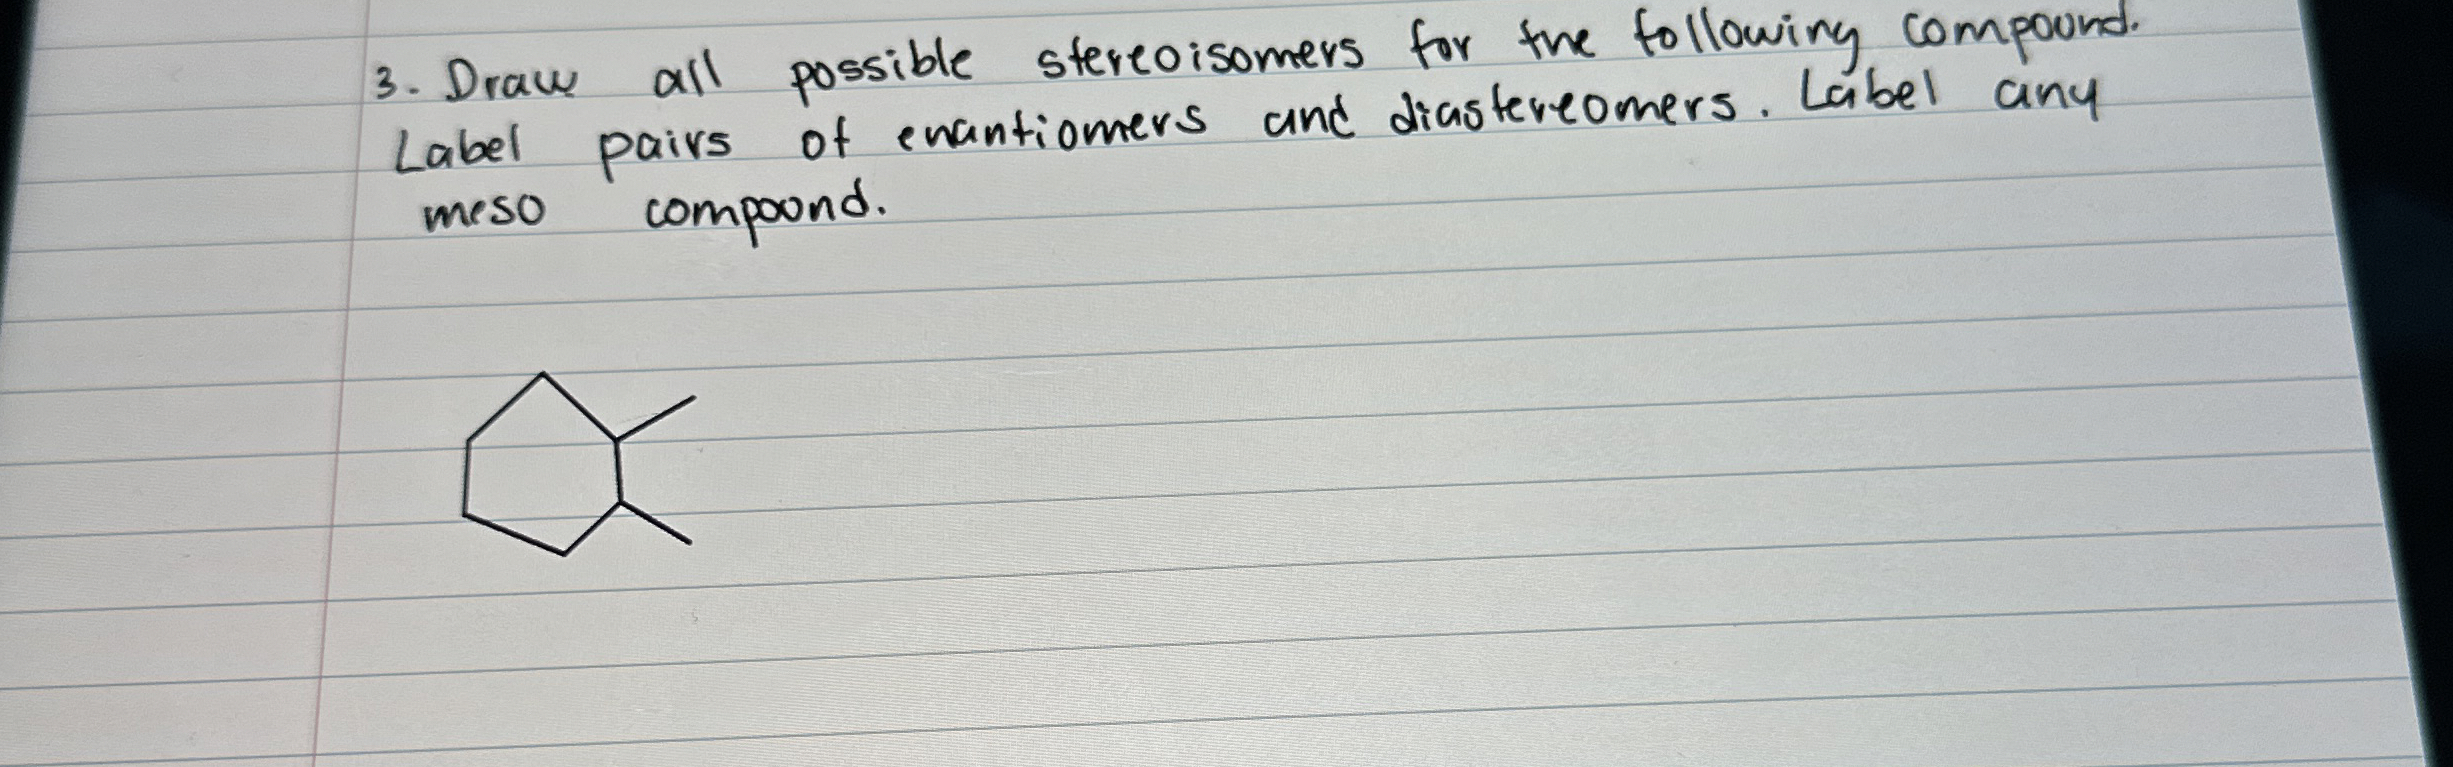 3. Draw all possible stereoisomers for the following compound.
Label pairs of enantiomers and diastereomers. Label any
meso compound.